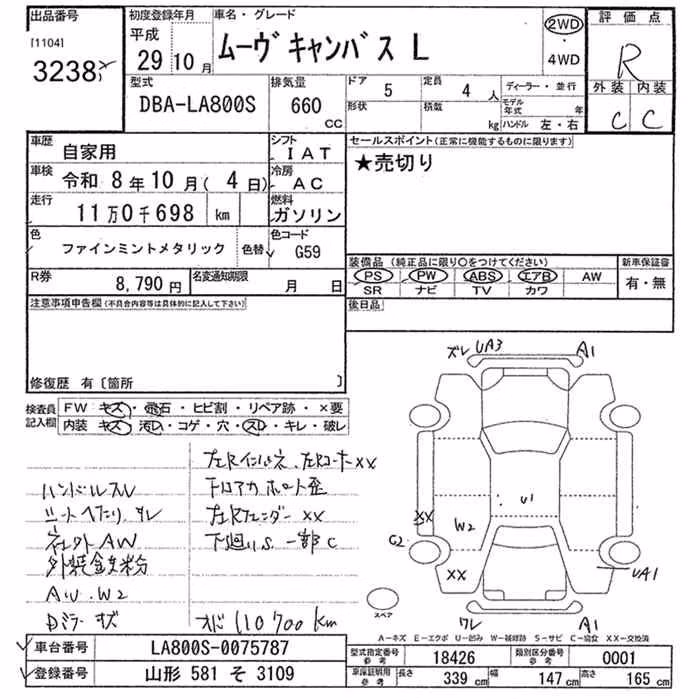 出品番号
[1104]
3238
初度登録年月
平成
29年10月
車名・グレード
ムーヴキャンバス L
2WD
・
4WD
評価点
R
外装 内装
C C
型式
DBA-LA800S
排気量
660
CC
ドア
5
定員
4人
形状
積載
kg
ディーラー・並行
モデル年式 年
ハンドル 左・右
車歴
自家用
シフト
IAT
車検
令和 8年10月(4日)
冷房
AC
走行
11万0千698 km
燃料
ガソリン
色
ファインミントメタリック
色替
色コード
G59
R券
8,790円
名変通知期限
月 日
セールスポイント(正常に機能するものに限ります)
★売切り
装備品(純正品に限り○をつけてください)
PS PW ABS エアB AW
SR ナビ TV カワ
新車保証書
有・無
後日品
注意事項申告欄(不具合内容等は具体的に記入して下さい)
修復歴 有〔箇所 〕
検査員記入欄
FW キズ・飛石・ヒビ割・リペア跡・×要
内装 キズ・汚レ・コゲ・穴・スレ・キレ・破レ
左Rインパネ、左RコーナーXX
ハンドルスレ
フロアカーボート歪
シートヘタリ、スレ
左Rフェンダー XX
ネジ外 AW
下廻りS 一部C
外装金属粉
AW、W2
Dミラーキズ
オド 110700km
ズレ UA3 A1
U1
XX
W2
C2
XX
UA1
ワレ A1
スペア
A-キズ E-エクボ U-凹み W-補修跡 S-サビ C-腐食 XX-交換済
車台番号
LA800S-0075787
登録番号
山形 581 そ 3109
型式指定番号 参考
18426
類別区分番号 参考
0001
車庫証明用 参考
長さ 339 cm
幅 147 cm
高さ 165 cm